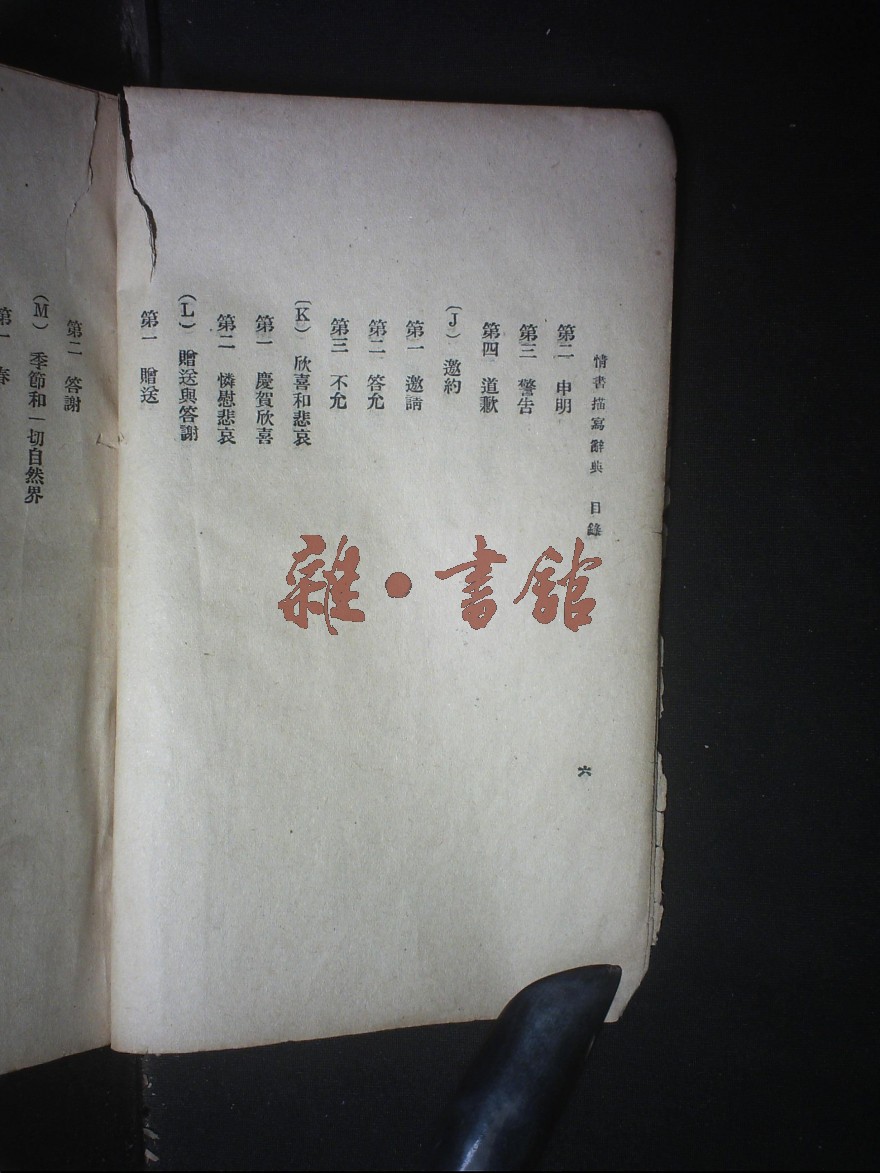 情書描寫辭典 目錄
六
第二 申明
第三 警告
第四 道歉
(J) 邀約
第一 邀請
第二 答允
第三 不允
(K) 欣喜和悲哀
第一 慶賀欣喜
第二 憐慰悲哀
(L) 贈送與答謝
第一 贈送
第二 答謝
(M) 季節和一切自然界
第一 春
雜·書館